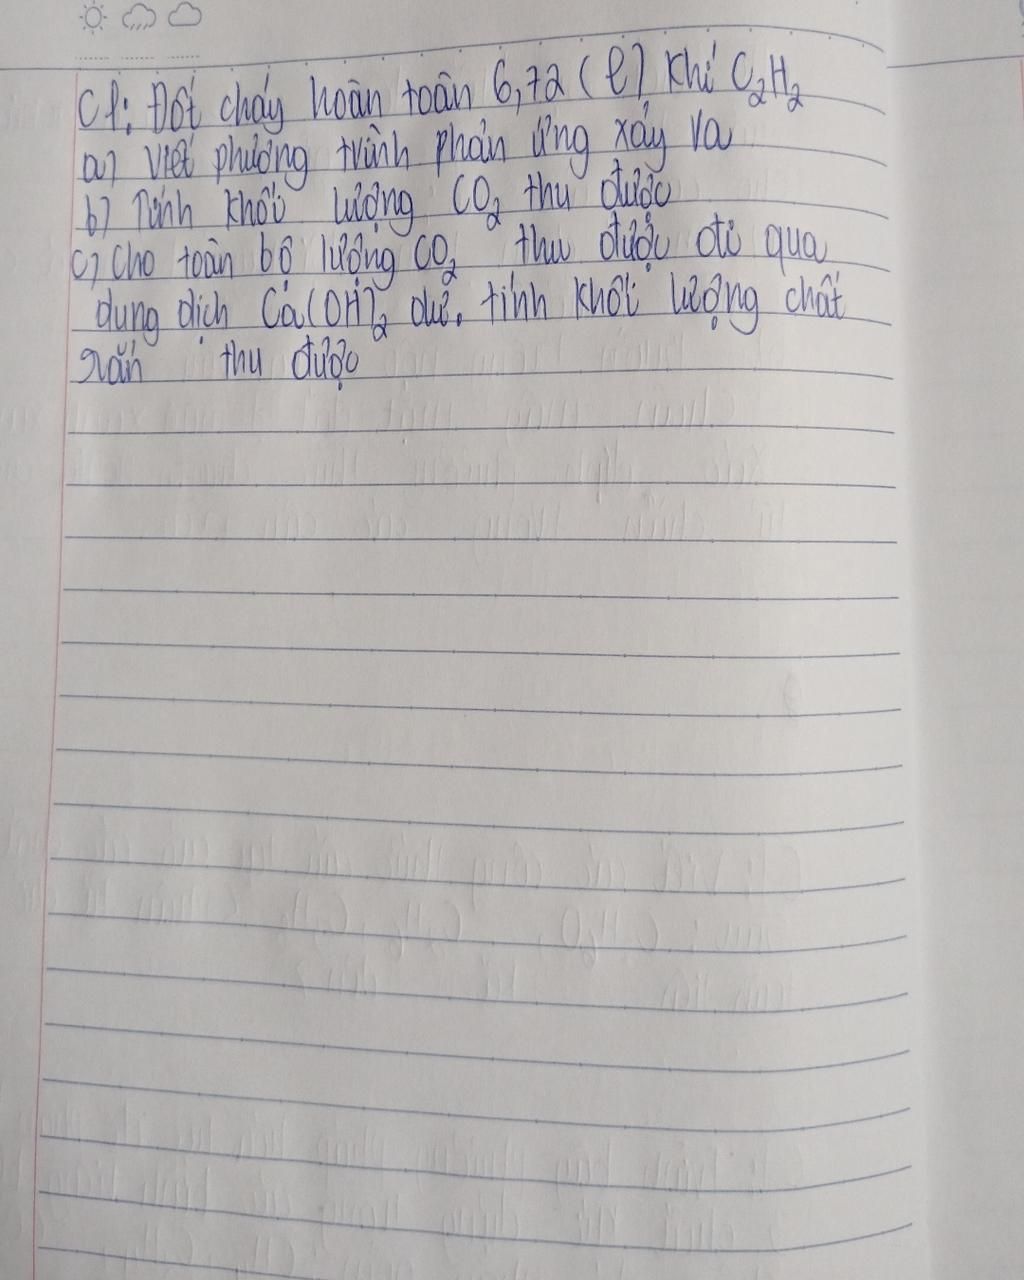 C1: Đốt cháy hoàn toàn 6,72 (l) khí C₂H₂
a) Viết phương trình phản ứng xảy ra
b) Tính khối lượng CO₂ thu được
c) Cho toàn bộ lượng CO₂ thu được đi qua
dung dịch Ca(OH)₂ dư. tính khối lượng chất
rắn thu được